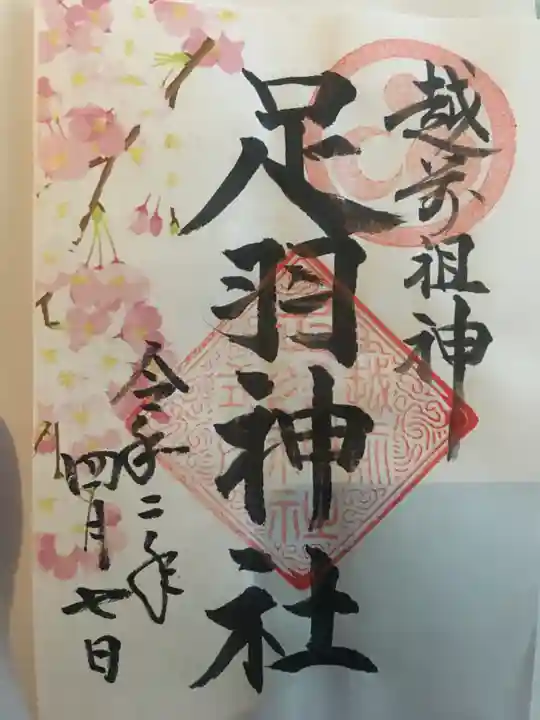 越前祖神
足羽神社
令和二年
四月七日